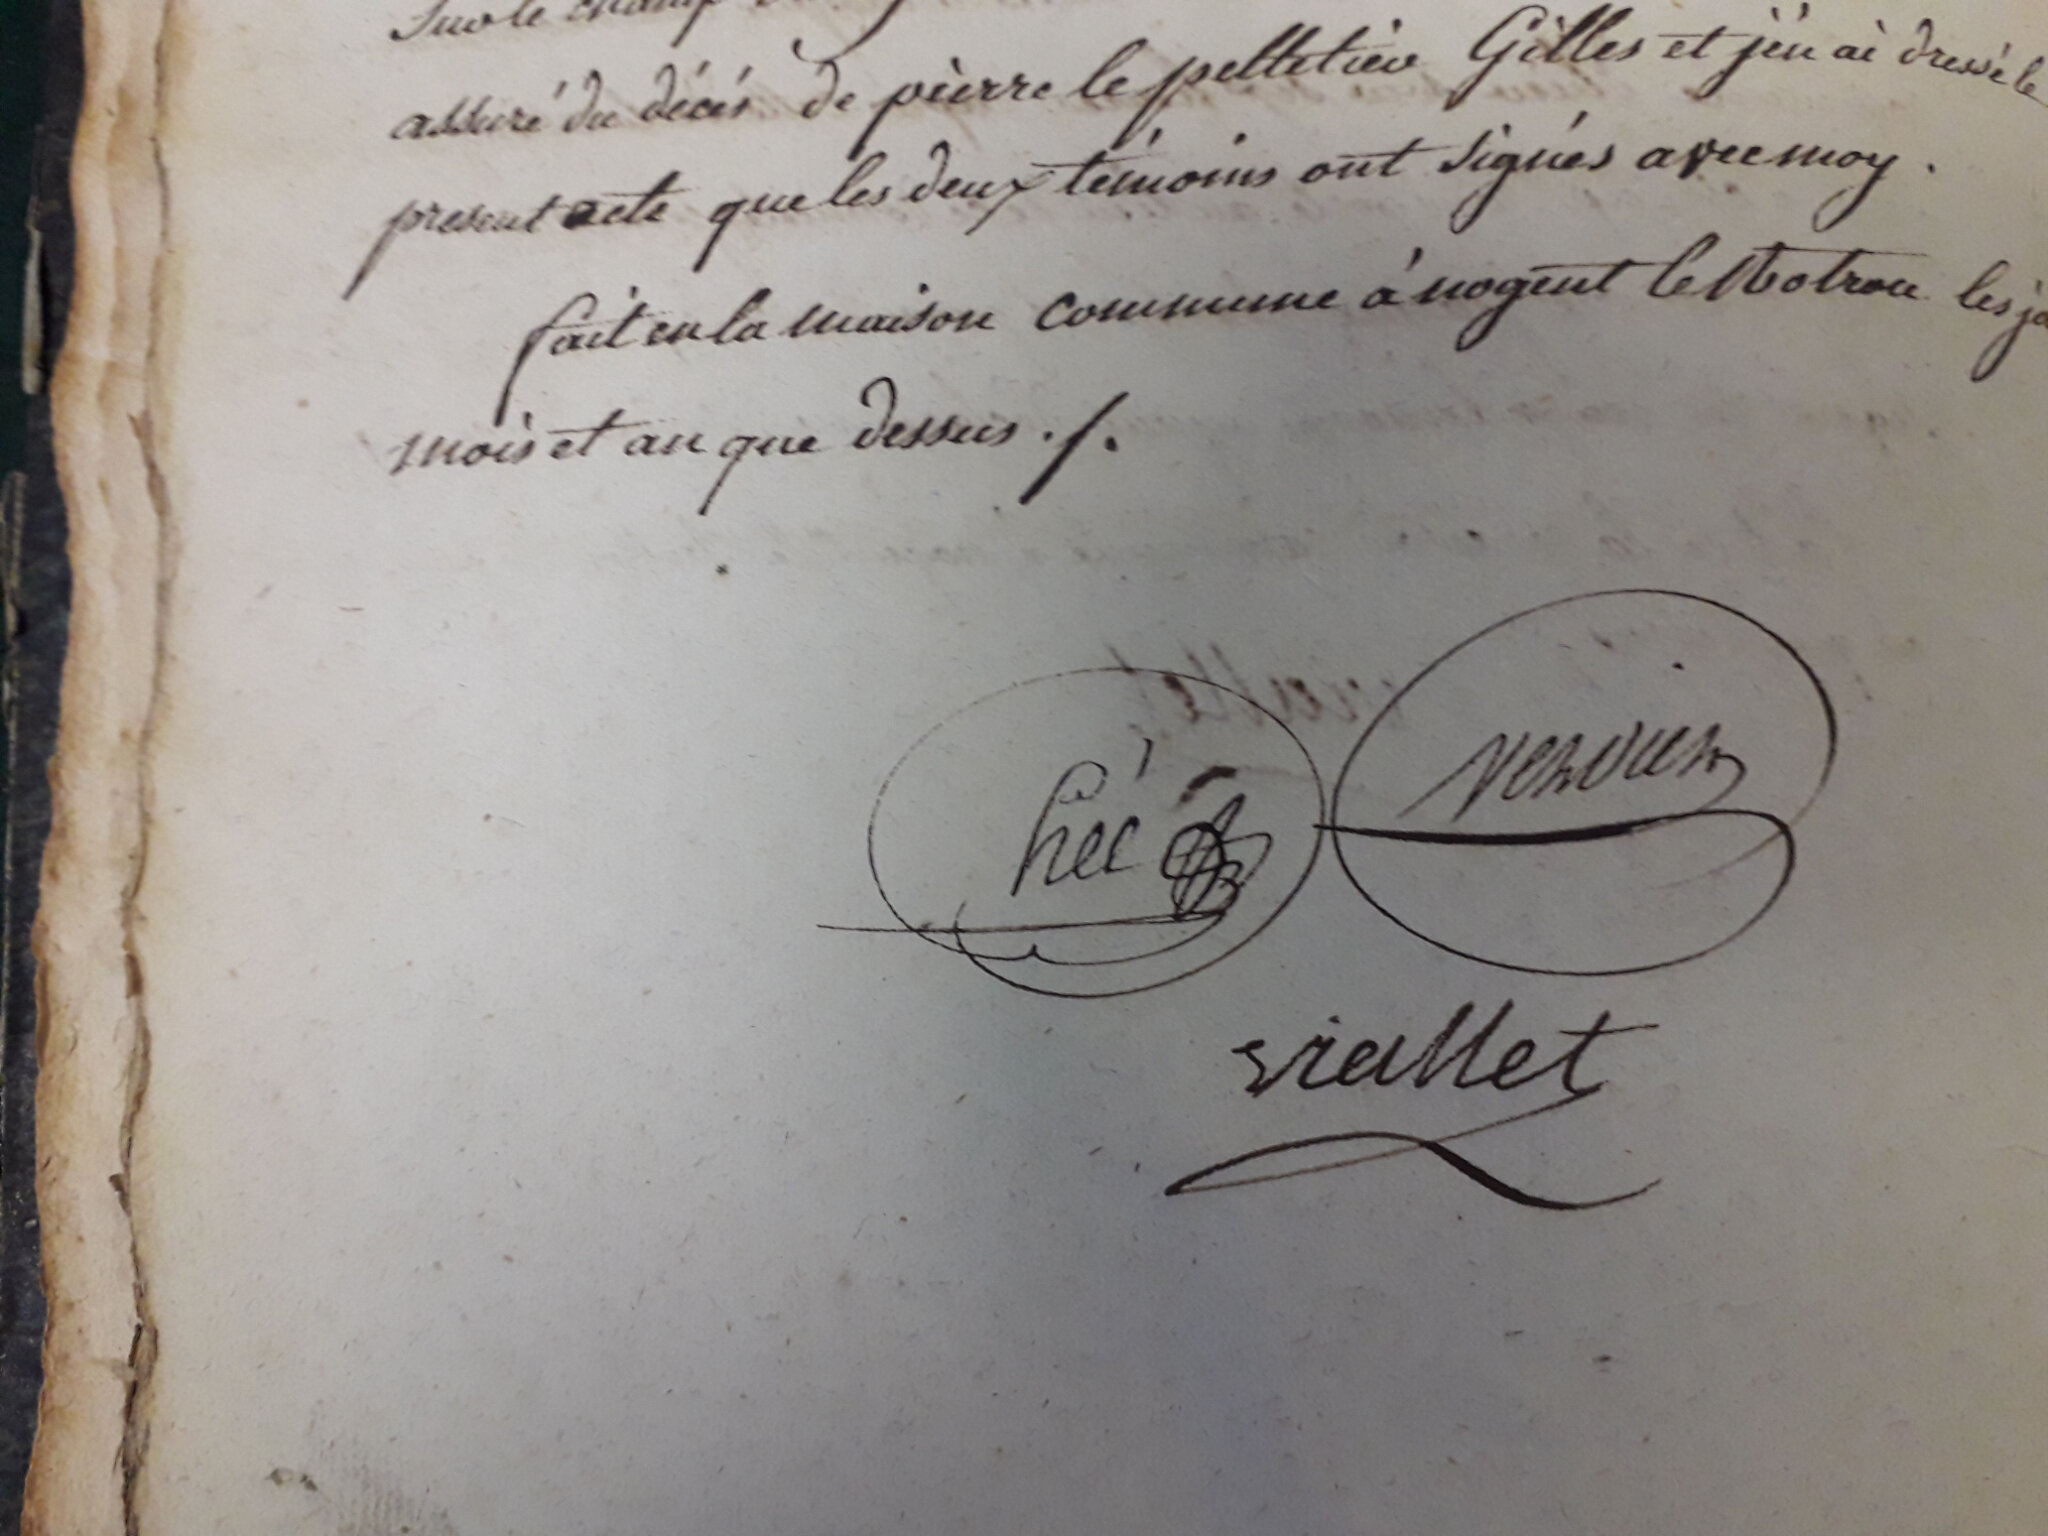 Sur le champ
assuré du décés de pierre le pelletier Gilles et j'en ai dressé le
present acte que les deux témoins ont signés avec moy.
fait en la maison commune à nogent le Rotrou les jo
mois et an que dessus ./.
heé
vervier
viallet